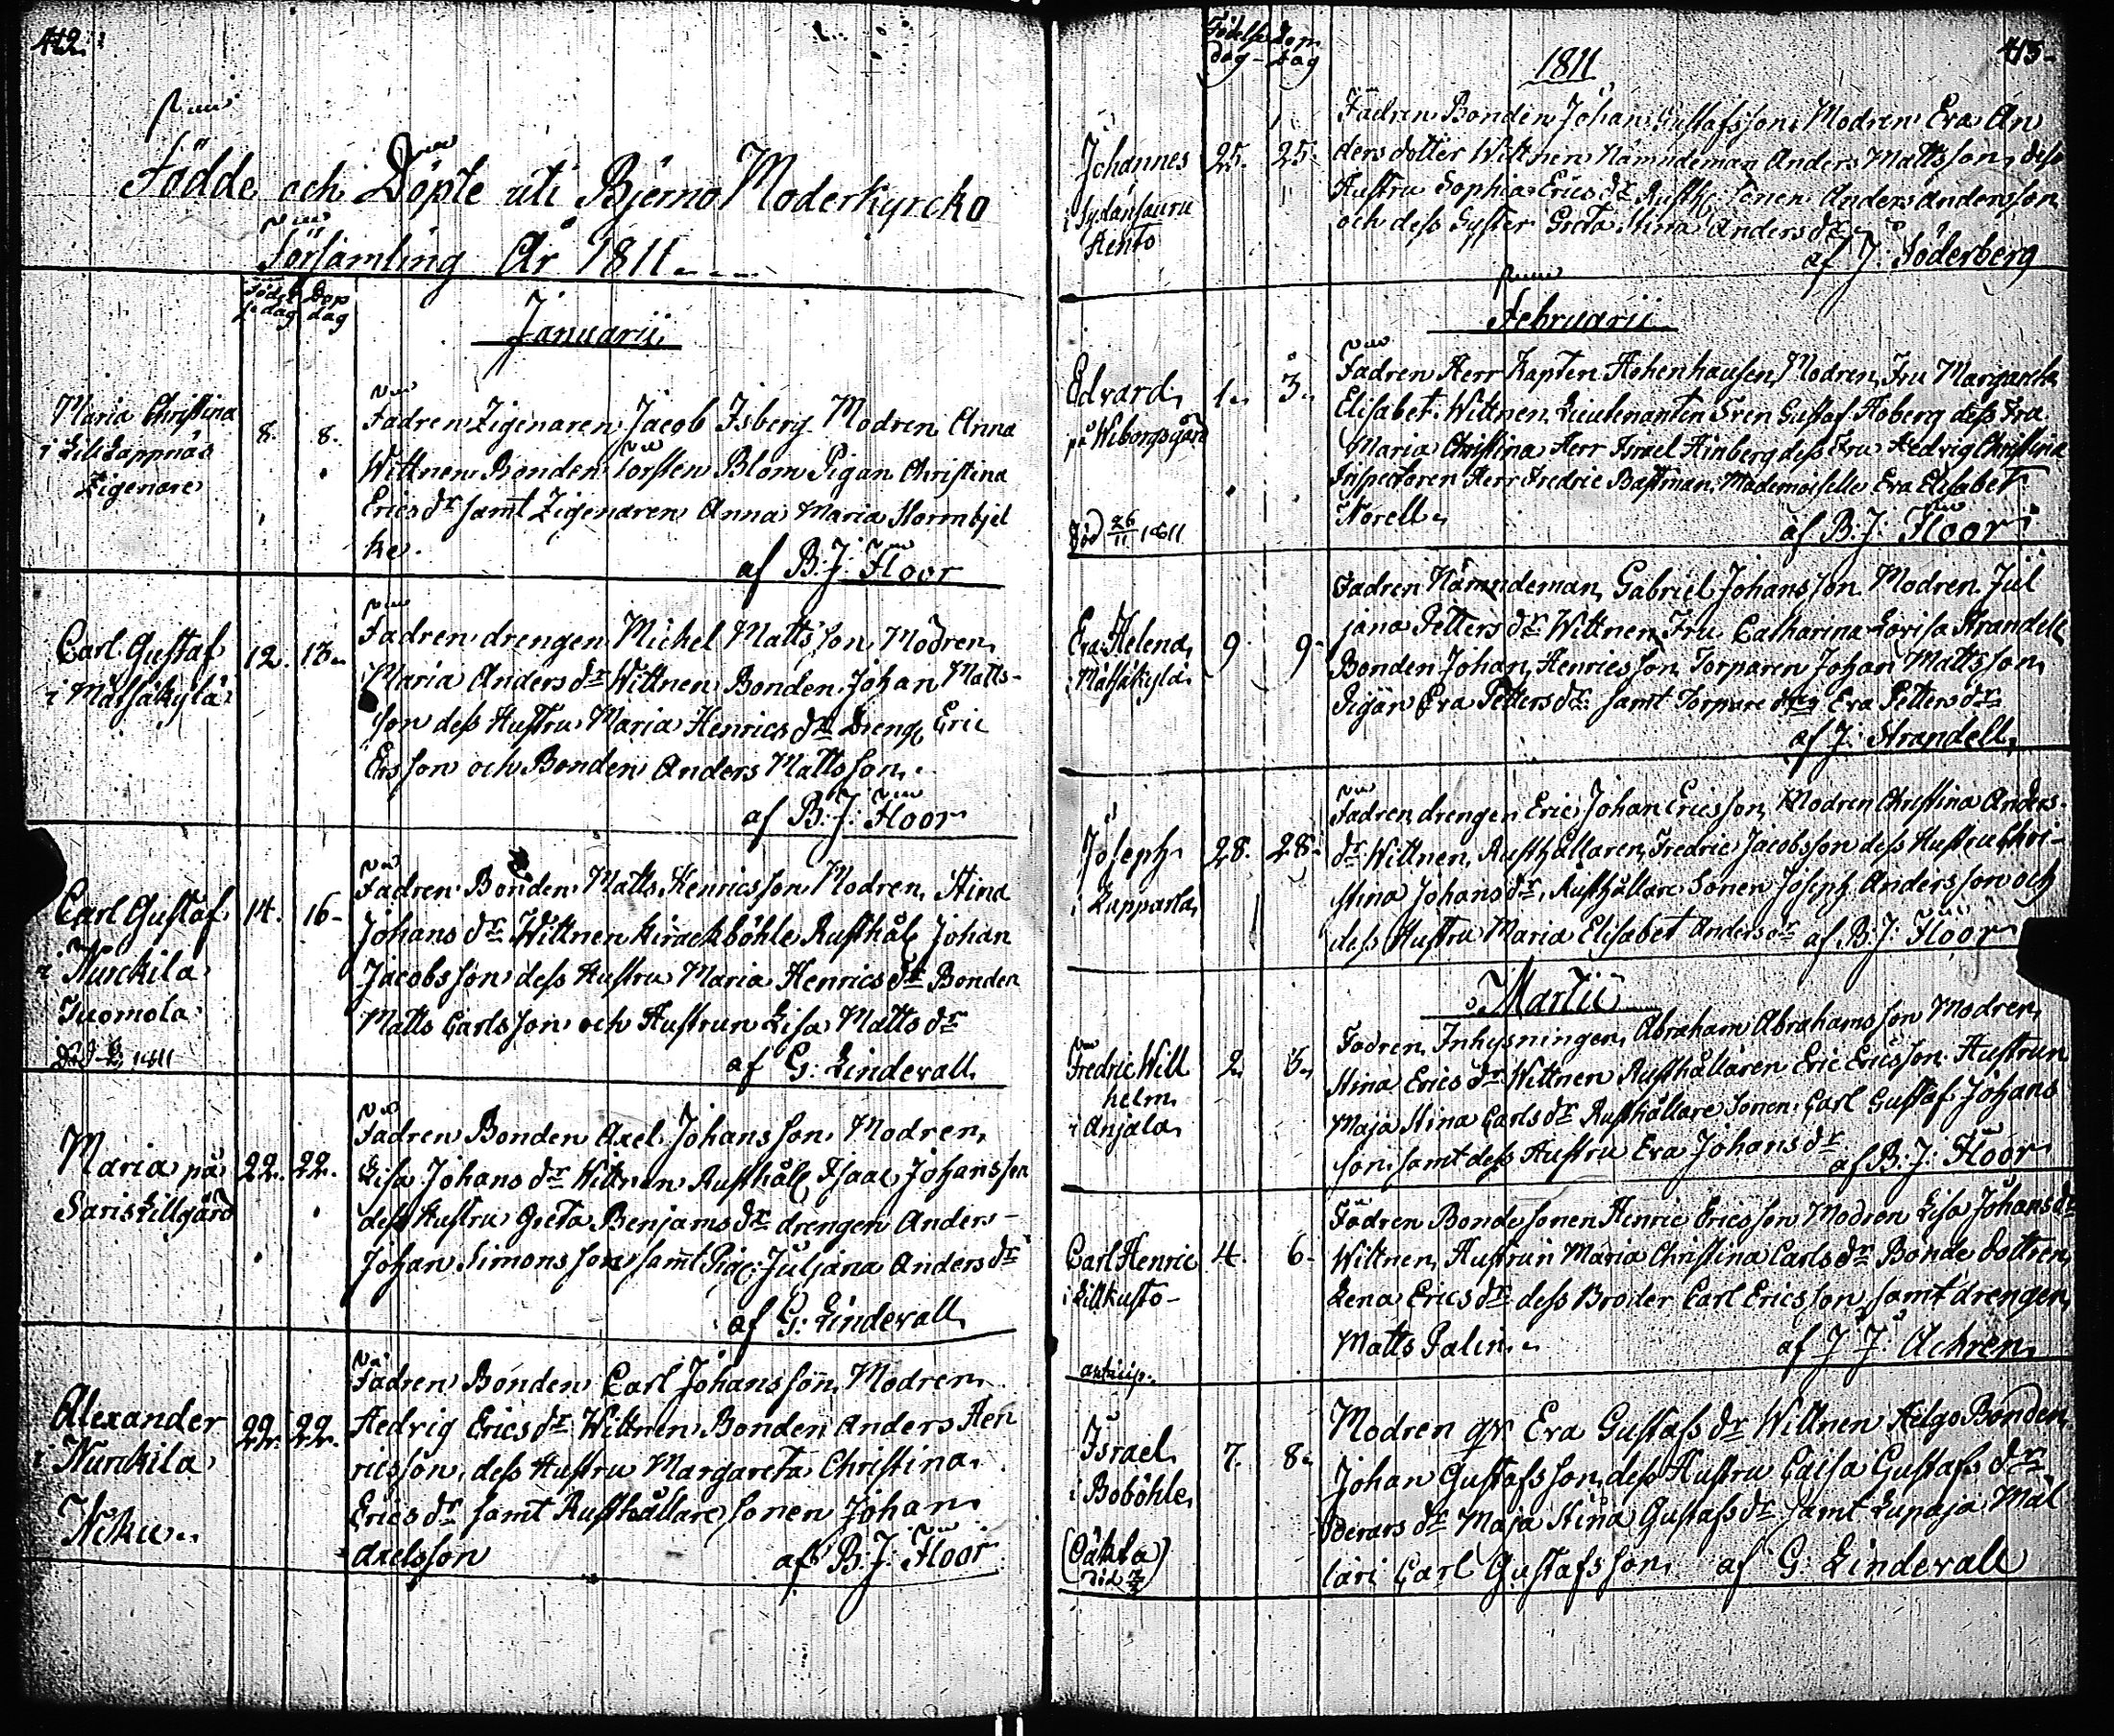 412.
Födde och Döpte uti Bjerno Moderkyrcko
Församling År 1811
Födelsedag Dop dag
Januarii
Maria Christina
i Lill Lappnäs
Zigenare
8. 8.
Fadren Zigenaren Jacob Isberg Modren Anna
Wittnen Bonden Torsten Blom Pigan Christina
Ericsdr samt Zigenaren Anna Maria Stormbjel
ke.
af B: J: Floor
Carl Gustaf
i Mätsäkylä
12. 13.
Fadren drengen Michel Mattsson, Modren
Maria Andersdr Wittnen Bonden Johan Matts-
son dess Hustru Maria Henricsdr Dreng Eric
Ersson och Bonden Anders Mattsson.
af B: J: Floor
Carl Gustaf
i Nurckila
Tuomola
död 1811
14. 16.
Fadren Bonden Matts Henricsson Modren Stina
Johansdr Wittnen Kirackböhle Rusthål Johan
Jacobsson dess Hustru Maria Henricsdr Bonden
Matts Carlsson och Hustrun Lisa Mattsdr
af G: Lindevall
Maria på
Saris Lillgård
22. 22.
Fadren Bonden Axel Johansson Modren
Lisa Johansdr Wittnen Rusthål Isaac Johansson
dess Hustru Greta Benjamsdr drengen Anders
Johan Simonsson samt Pig: Juljana Andersdr
af G: Lindevall
Alexander
i Nurckila
Niku
22. 22.
Fadren Bonden Carl Johansson, Modren
Hedvig Ericsdr Wittnen Bonden Anders Hen
ricsson, dess Hustru Margareta Christina
Ericsdr samt Rusthållare sonen Johan
Axelsson
af B: J: Floor
413
Födelse dag Dop dag
1811
Johannes
i Sydänsauru
Hento
25. 25.
Fadren Bonden Johan Gustafsson, Modren Eva An
dersdotter Wittnen Nämndeman Anders Mattsson, dess
Hustru Sophia Ericsdr Rusth: sonen Anders Andersson
och dess Syster Greta Stina Andersdr
af J: Söderberg
Februarii
Edvard
på Wiborgsgård
död 26/11 1811
1. 3.
Fadren Herr Kapten Hohenhausen, Modren Fru Margareta
Elisabet. Wittnen Lieutenanten Gustaf Hoberg dess Fru
Maria Christina Herr Israel Himberg dess Fru Hedvig Christina
Inspectoren Herr Fredric Bastman, Mademoiselle Eva Elisabet
Norell.
af B: J: Floor
Eva Helena
i Mätsäkylä
9. 9.
Fadren Nämndeman Gabriel Johansson Modren Jul
jana Pettersdr Wittnen Fru Catharina Lovisa Strandell
Bonden Johan Henricsson, Torparen Johan Mattsson
Pigan Eva Pettersdr samt Torpare Eva Pettersdr
af J: Strandell
Joseph
i Lupparla
28. 28.
Fadren drengen Eric Johan Ericsson, Modren Christina Anders
dr Wittnen, Rusthållaren Fredric Jacobsson dess Hustru Chri-
stina Johansdr, Rusthållare sonen Joseph Andersson och
dess Hustru Maria Elisabet Andersdr af B: J: Floor
Martii
Fredric Will
helm
i Anjala
2. 3.
Fadren Inhysningen, Abraham Abrahamsson Modren
Stina Ericsdr Wittnen Rusthållaren Eric Ericsson Hustrun
Maja Stina Carlsdr Rusthållare sonen Carl Gustaf Johans
son samt dess Hustru Eva Johansdr af B: J: Floor
Carl Henric
i Lillkusto
4. 6.
Fadren Bonde sonen Henric Ericsson Modren Lisa Johansdr
Wittnen, Hustrun Maria Christina Carlsdr Bonde dottren
Lena Ericsdr dess Broder Carl Ericsson samt drengen
Matts Palin
af J: J: Achren
Israel
i Boböhle
(Oäkta)
död
7. 8.
Modren qv Eva Gustafsdr Wittnen Helgo Bonden
Johan Gustafsson dess Hustru Caisa Gustafsdr
Maja Stina Gustafsdr samt Lupaja Mäl
läri Carl Gustafsson af G: Lindevall